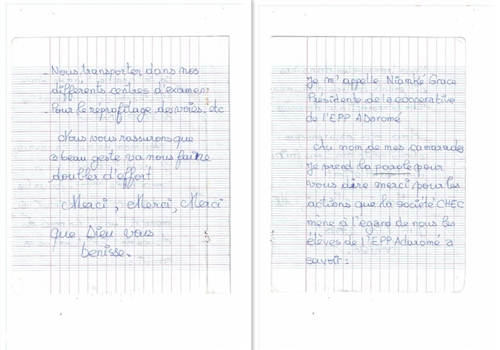 - Nous transporter dans nos
différents centres d'examen
- Pour le reprofilage des voies. etc
Nous vous rassurons que
ce beau geste va nous faire
doubler d'effort
Merci, Merci, Merci
que Dieu vous
benisse.
Je m'appelle Niamké Grace
Présidente de la coopérative
de l'EPP Adaromé
Au nom de mes camarades
je prend la parole pour
vous dire merci pour les
actions que la société CHEC
mène à l'égard de nous les
élèves de l'EPP Adaromé a
savoir :